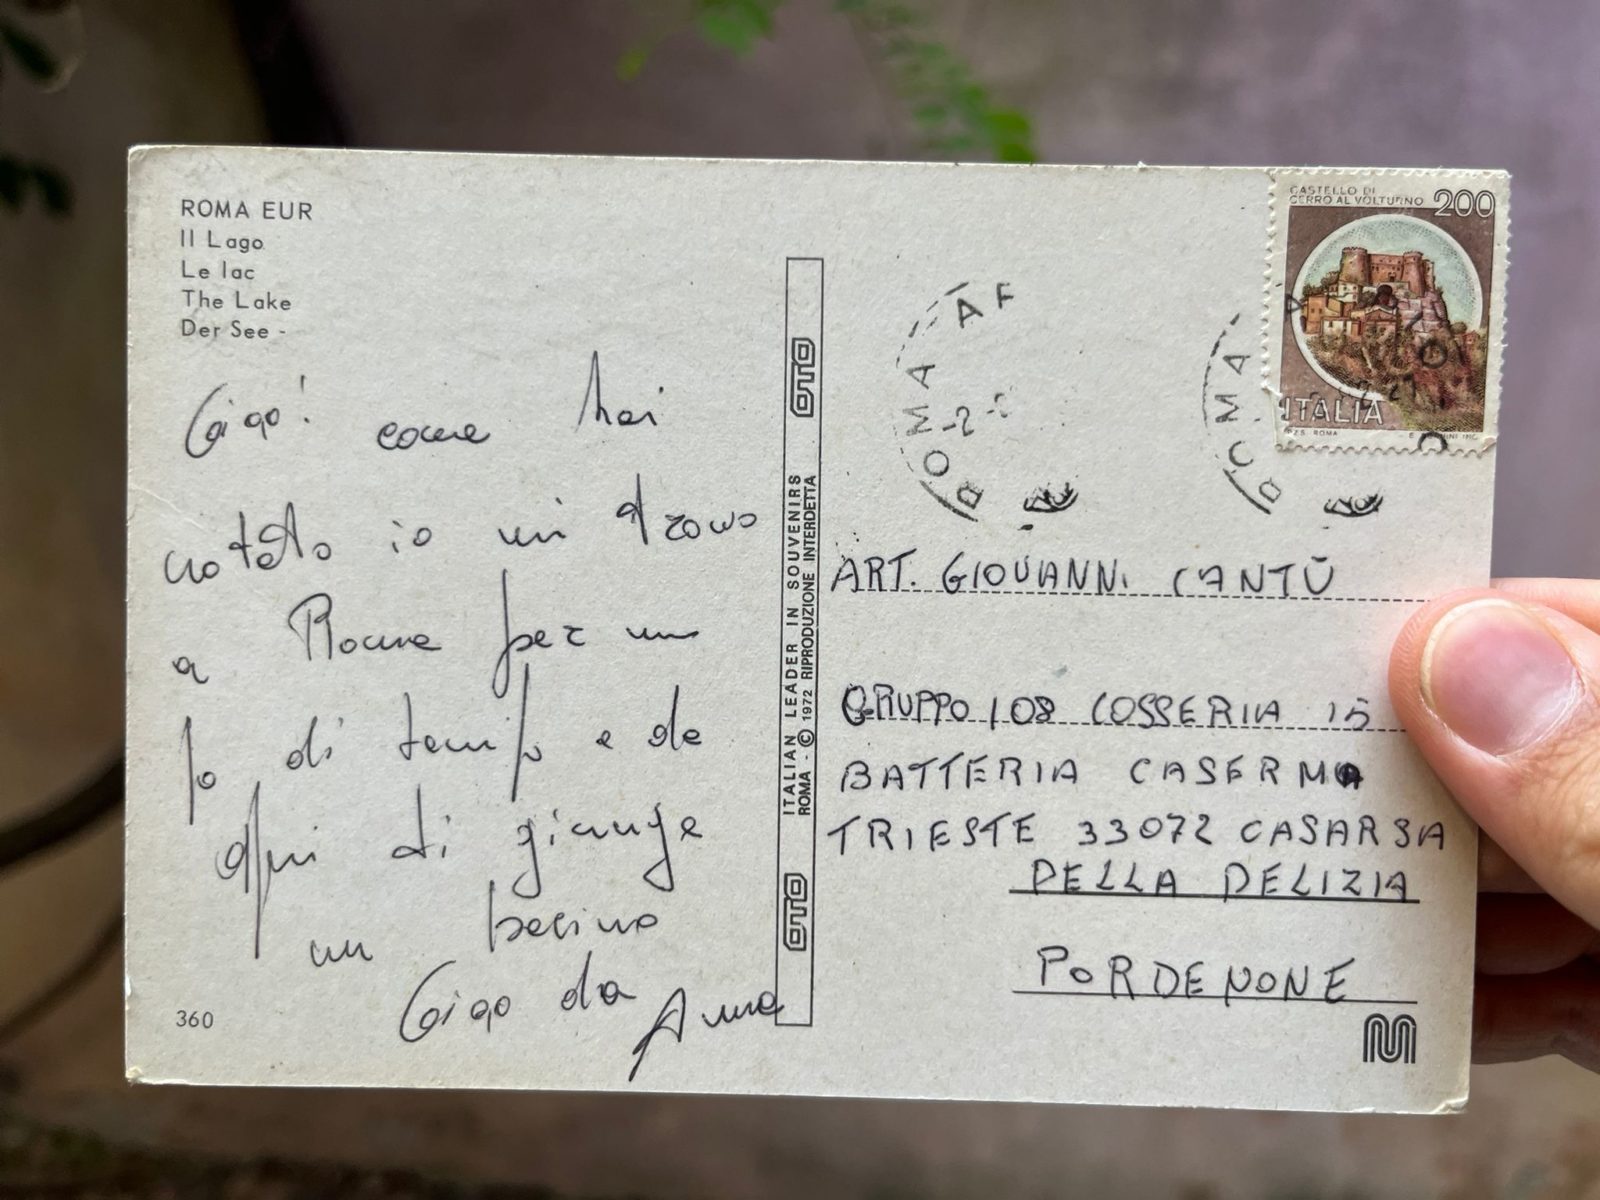 ROMA EUR
Il Lago
Le lac
The Lake
Der See -
Ciao! come hai
notato io mi trovo
a Roma per un
po di tempo e da
qui ti giunge
un bacino
Ciao da
Anna
360
OTO
ITALIAN LEADER IN SOUVENIRS
ROMA - © 1972 RIPRODUZIONE INTERDETTA
OTO
ROMA AF
ROMA
CASTELLO DI
CERRO AL VOLTURNO 200
ITALIA
I.P.Z.S. ROMA
ART. GIOVANNI CANTÙ
GRUPPO 108 COSSERIA 15
BATTERIA CASERMA
TRIESTE 33072 CASARSA
DELLA DELIZIA
PORDENONE
M